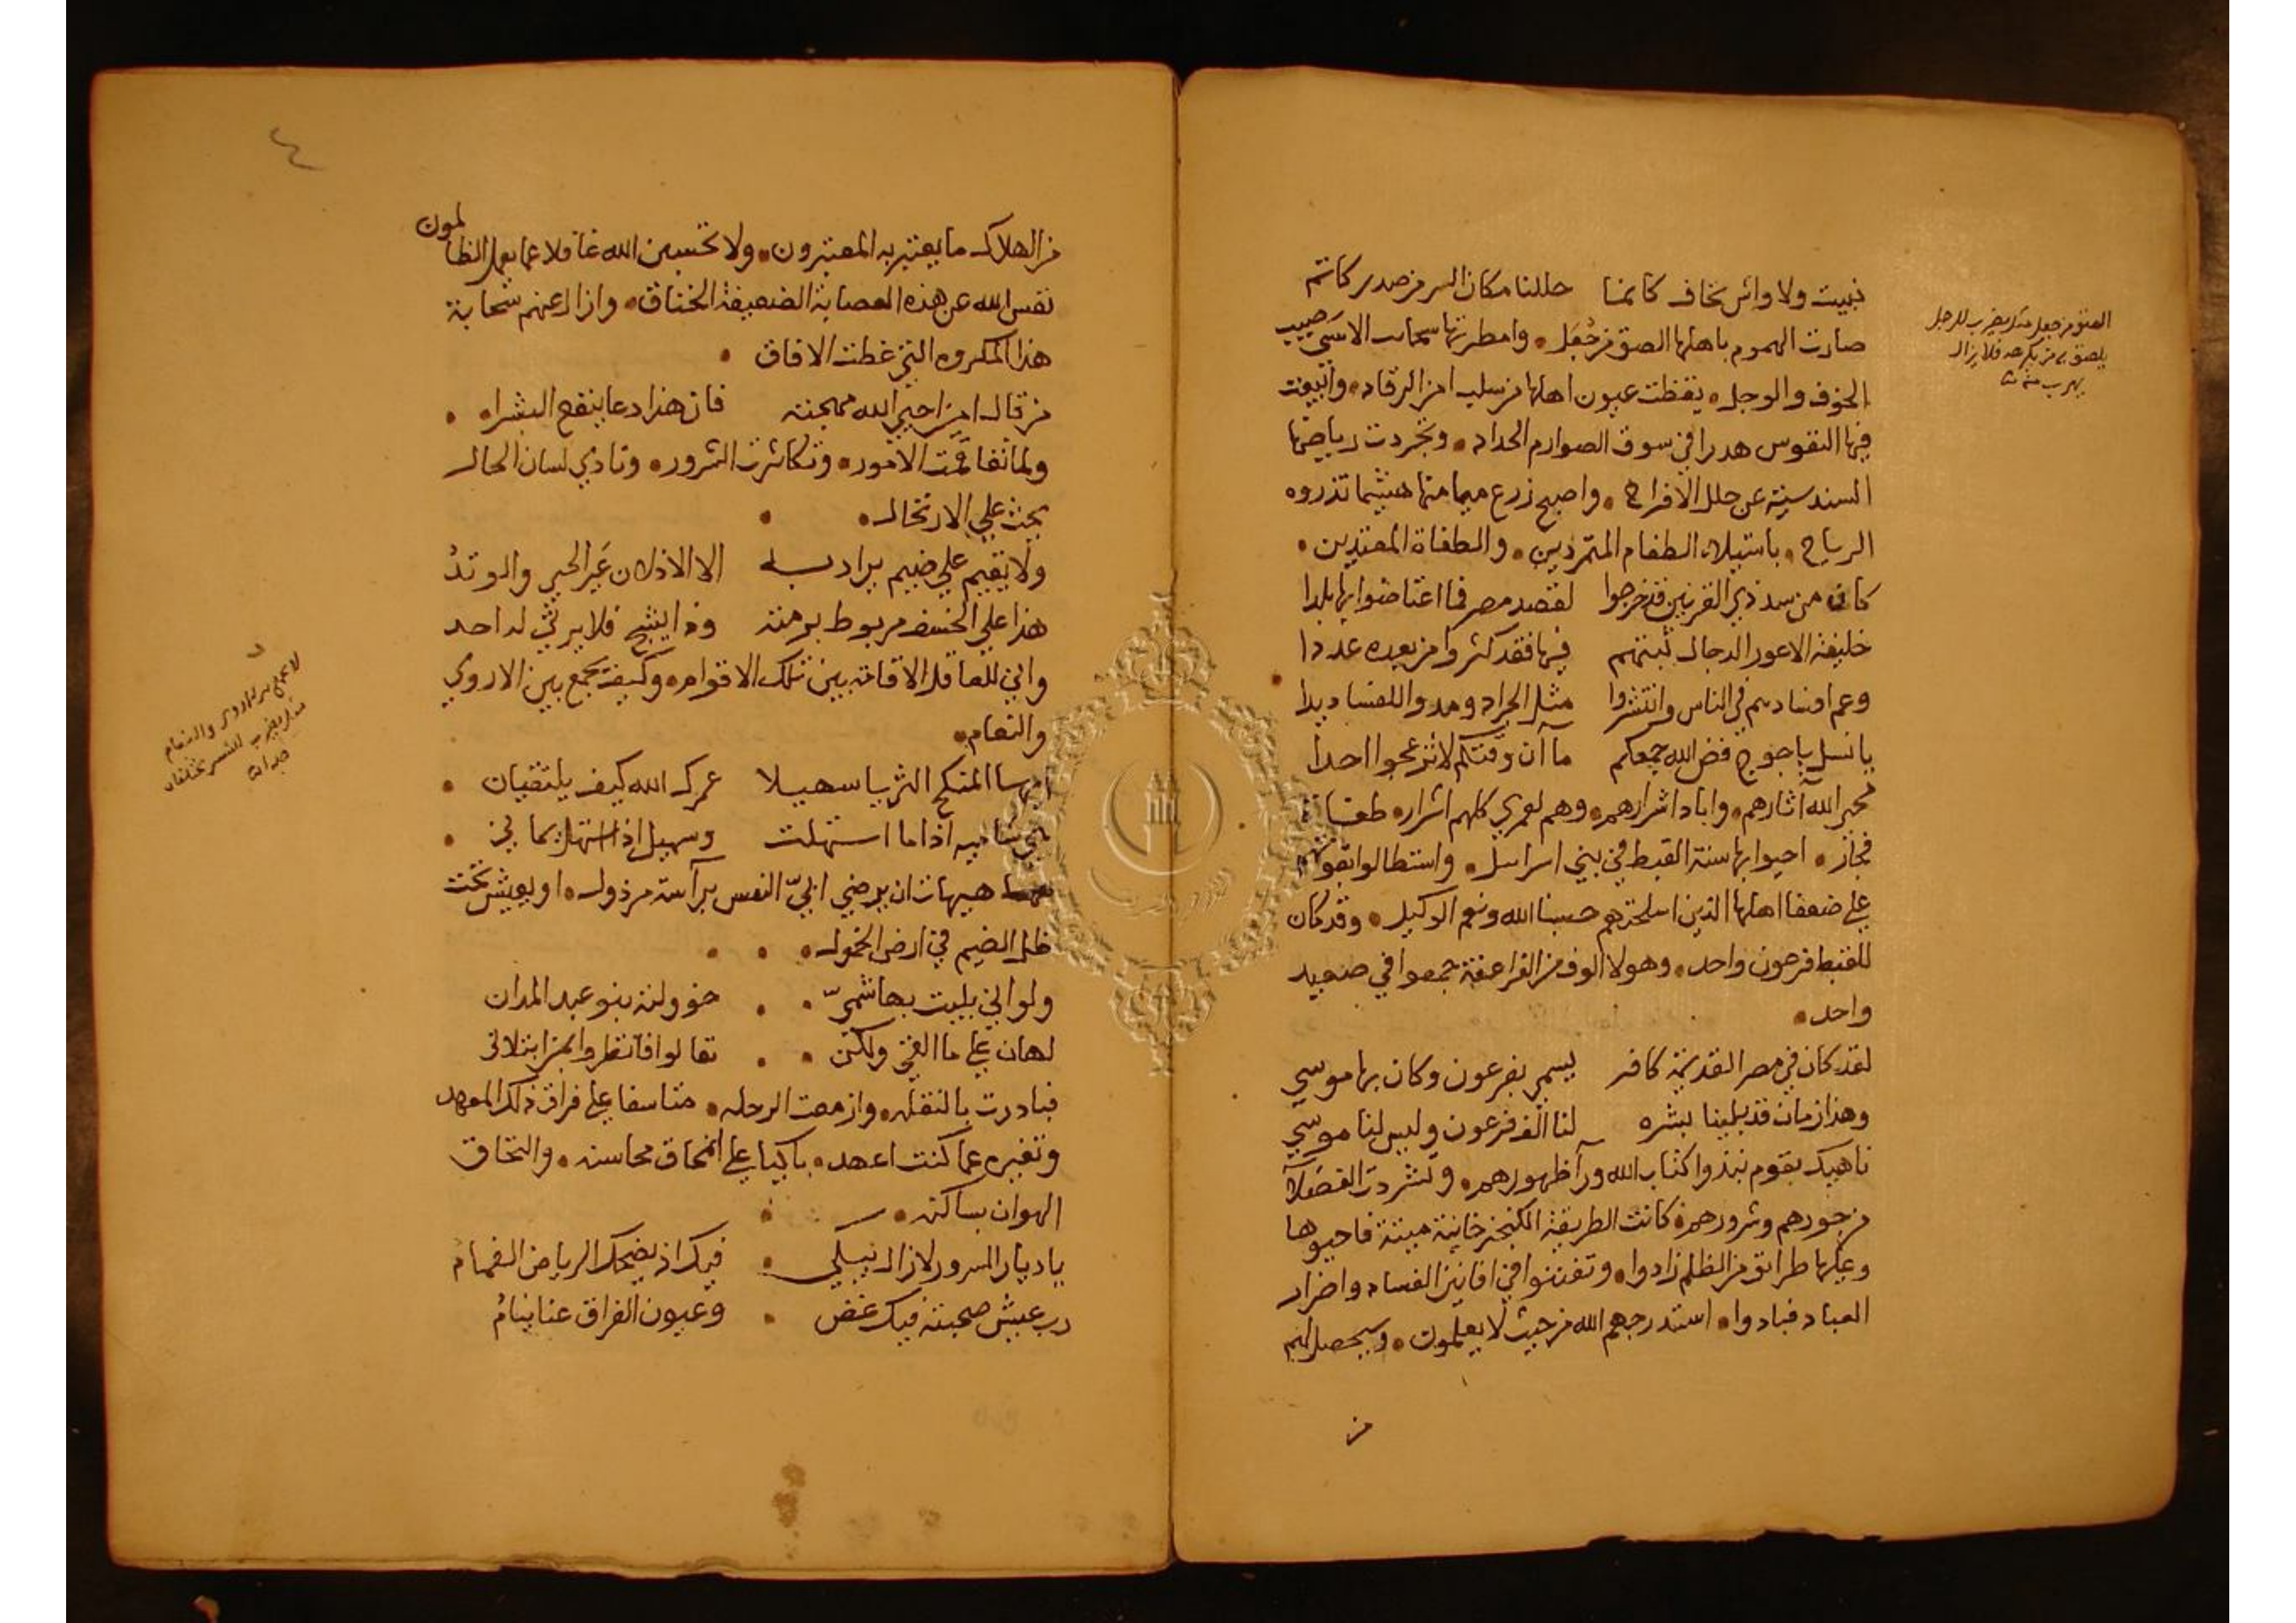 نبيت ولا واش نخاف كانما حللنا مكان السر من صدر كاتم
صارت الهموم باهلها الصق من جُعَل • وامطرتها سحاب الاسَى صيب
الخوف والوجل • يقظت عيون اهلها من سلب امن الرقاد • وابيعت
فيها النفوس هدرا في سوق الصوارم الحداد • وتجردت رياضها
السندسية عن حلل الافراح • واصبح زرع ميامنها هشيما تذروه
الرياح • باستيلاء الطغام المتمردين • والطغاة المعتدين •
كان من سد ذي القرنين قد خرجوا لقصد مصر فما اعتاضوا بها بلدا
خليفة الاعور الدجال ثبتهم فيها فقد كثروا من بعده عددا
وعم افسادهم في الناس وانتشروا مثل الجراد ومدوا للفساد يدا
يا نسل ياجوج فض الله جمعكم ما آن وقتكم لا تزعجوا احدا
محى الله آثارهم • واباد اشرارهم • وهم لعمري كلهم اشرار • طغاة
فجار • احيوا بها سنة القبط في بني اسرايل • واستطالوا بقوتهم
على ضعفا اهلها الذين اسلحتهم حسبنا الله ونعم الوكيل • وقد كان
للقبط فرعون واحد • وهولا الوف من الفراعنة جمعوا في صعيد
واحد •
لقد كان في مصر القديمة كافر يسمى بفرعون وكان بها موسي
وهذا زمان قد بلينا بشره لنا الف فرعون وليس لنا موسي
ناهيك بقوم نبذوا كتاب الله ورآ ظهورهم • وتشردت الفضلآ
من جورهم وشرورهم • كانت الطريقة الكنجزخانية ميتة فاحيوها
وعليها طرائق من الظلم زادوا • وتفننوا في افانين الفساد واضرار
العباد فبادوا • استدرجهم الله من حيث لا يعلمون • وسيحصل لهم
من
الصق من جعل مثل يضرب للرجل
يلصق به من يكرهه فلا يزال
يهرب منه
٤
من الهلاك ما يعتبر به المعتبرون • ولا تحسبن الله غافلا عما يعمل الظالمون
نفس الله عن هذه العصابة الضعيفة الخناق • وازال عنهم سحابة
هذا المكروه التي غطت الافاق •
من قال امين احيى الله مهجته فان هذا دعا ينفع البشرا •
ولما تفاقمت الامور • وتكاثرت الشرور • ونادي لسان الحال
بحث علي الارتحال •
ولا يقيم علي ضيم يراد به الا الاذلان عَير الحي والوتدُ
هذا علي الخسف مربوط برمته وذا يشج فلا يرثي له احد
واني للعاقل الاقامة بين تلك الاقوام • وكيف يجمع بين الاروي
والنعام •
ايها المنكح الثريا سهيلا عمرك الله كيف يلتقيان •
هي شاميه اذا ما استهلت وسهيل اذا استهل يماني •
هيهات ان يرضي ابيّ النفس برآسة مرذول • او يعيش تحت
ظل الضيم في ارض الخمول •
ولو اني بليت بهاشميّ • خؤولته بنو عبد المدان
لهان علي ما القى ولكن • تعالوا فانظروا بمن ابتلاني
فبادرت بالنقله • وازمعت الرحله • متاسفا على فراق ذلك المعهد
وتغيره عما كنت اعهد • باكيا على امحاق محاسنه • والتحاق
الهوان بساكنه •
يا ديار السرور لا زال يبكي • فيك اذ يضحك الرياض الغمام
رب عيش صحبته فيك غض • وعيون الفراق عنا نيامُ
لا يجمع بين الاروي والنعام
مثل يضرب للشيء يختلفان
جدا